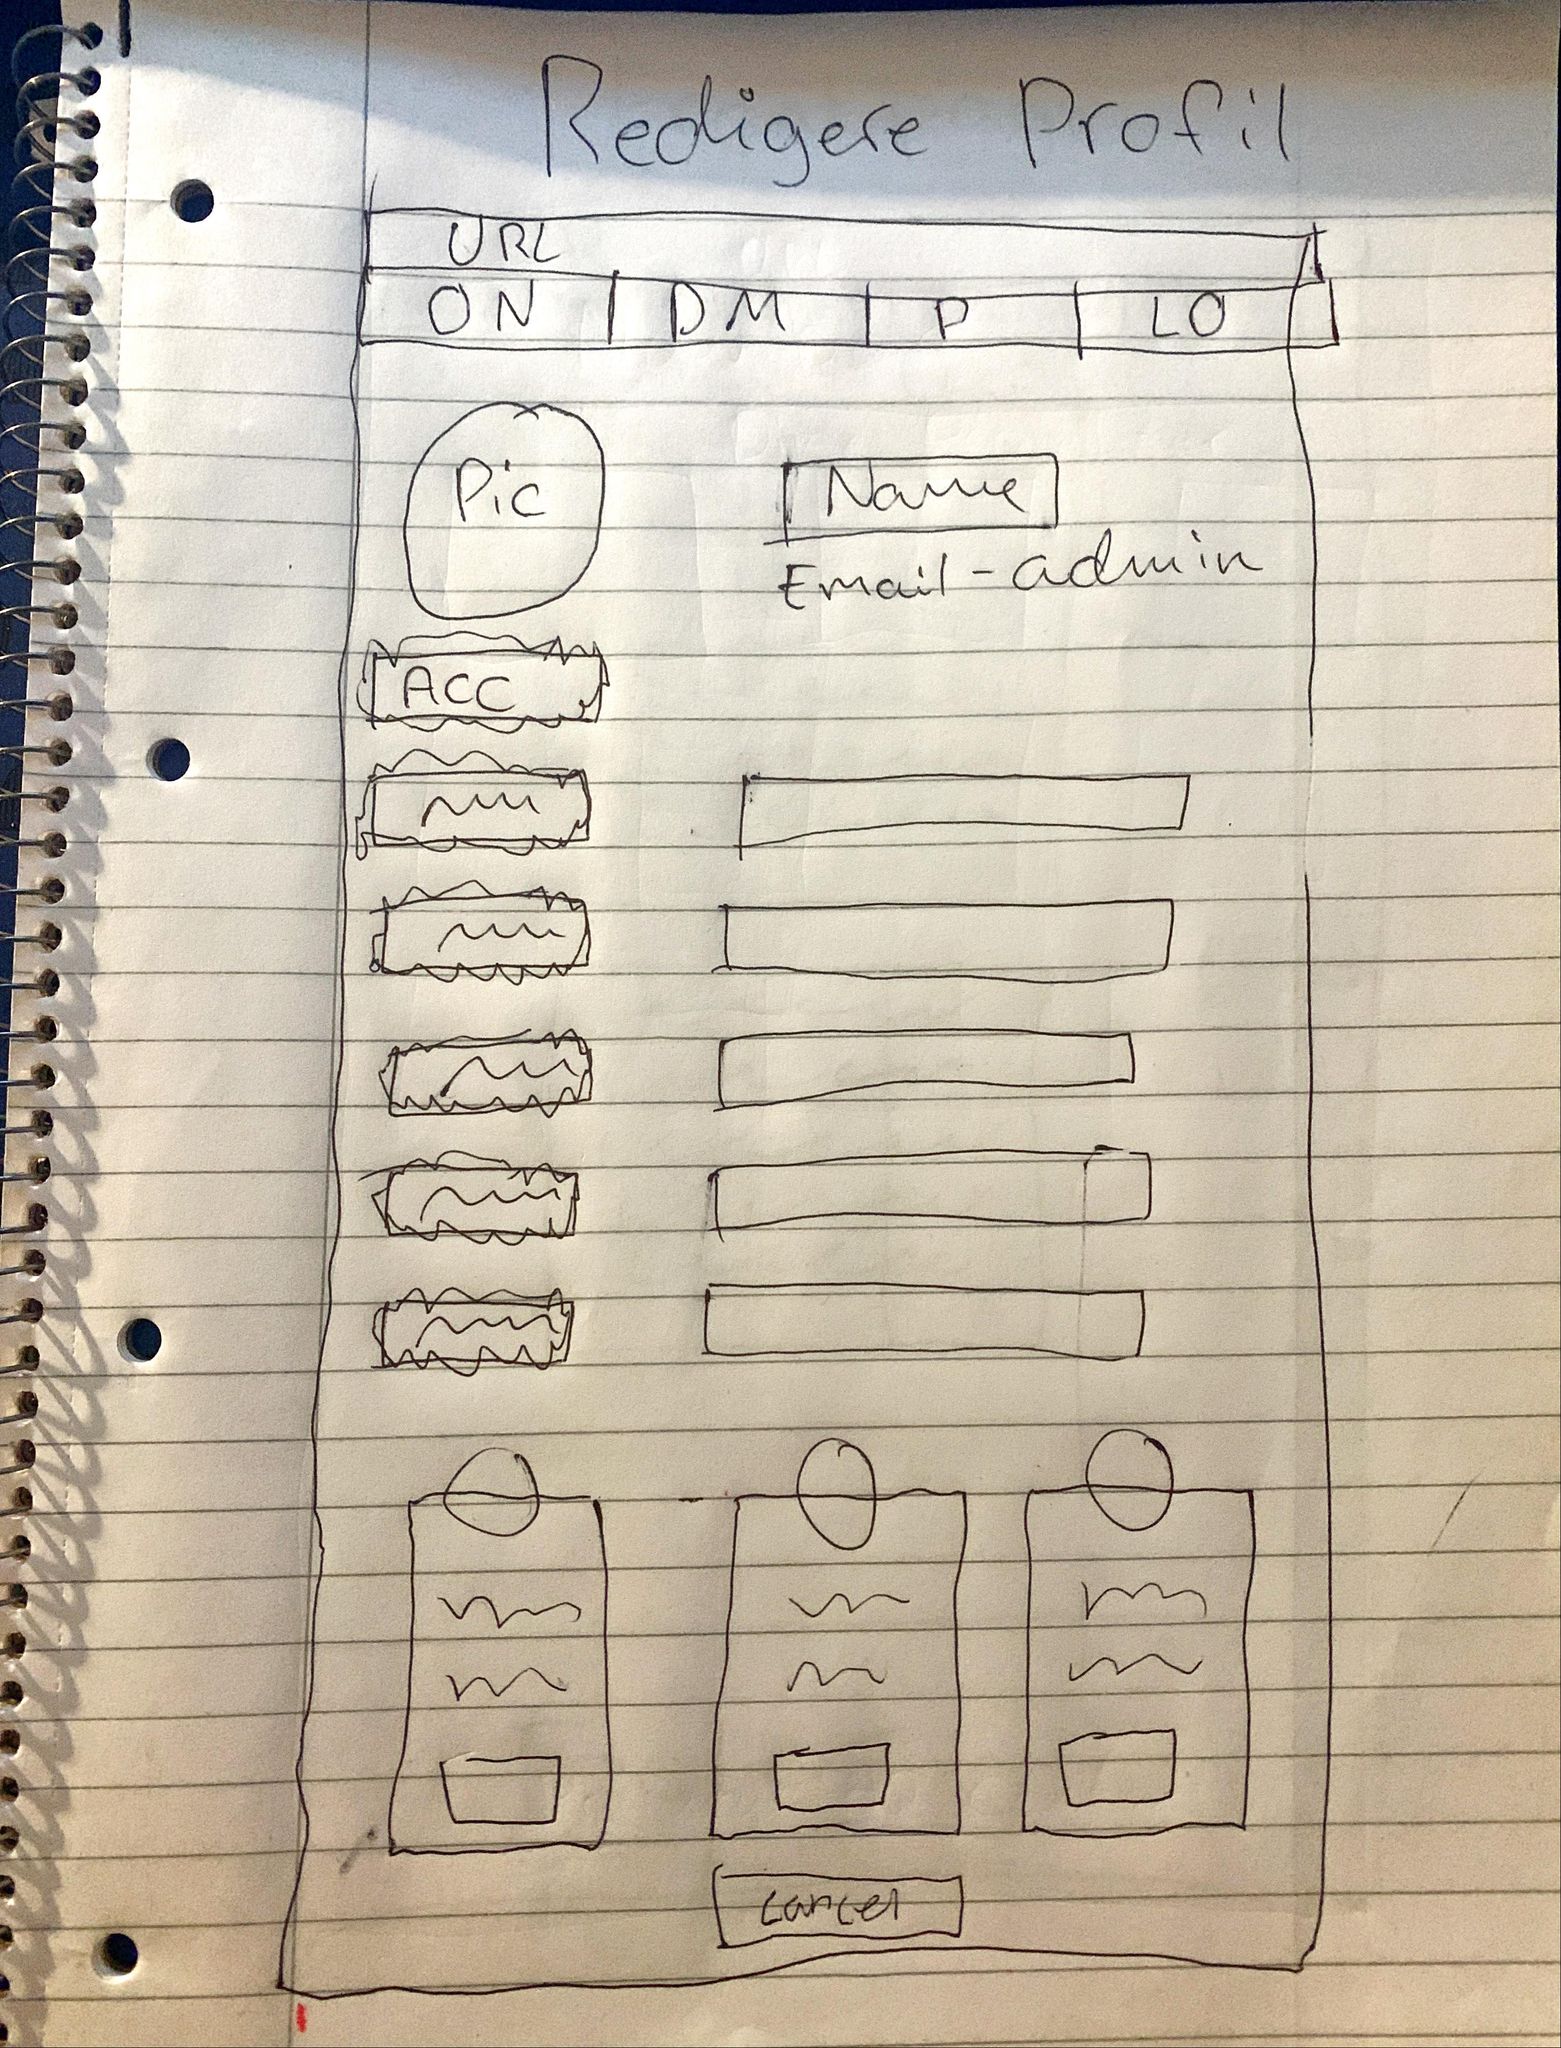 Redigere Profil
URL
ON DM P LO
Pic
Name
Email-admin
ACC
cancel